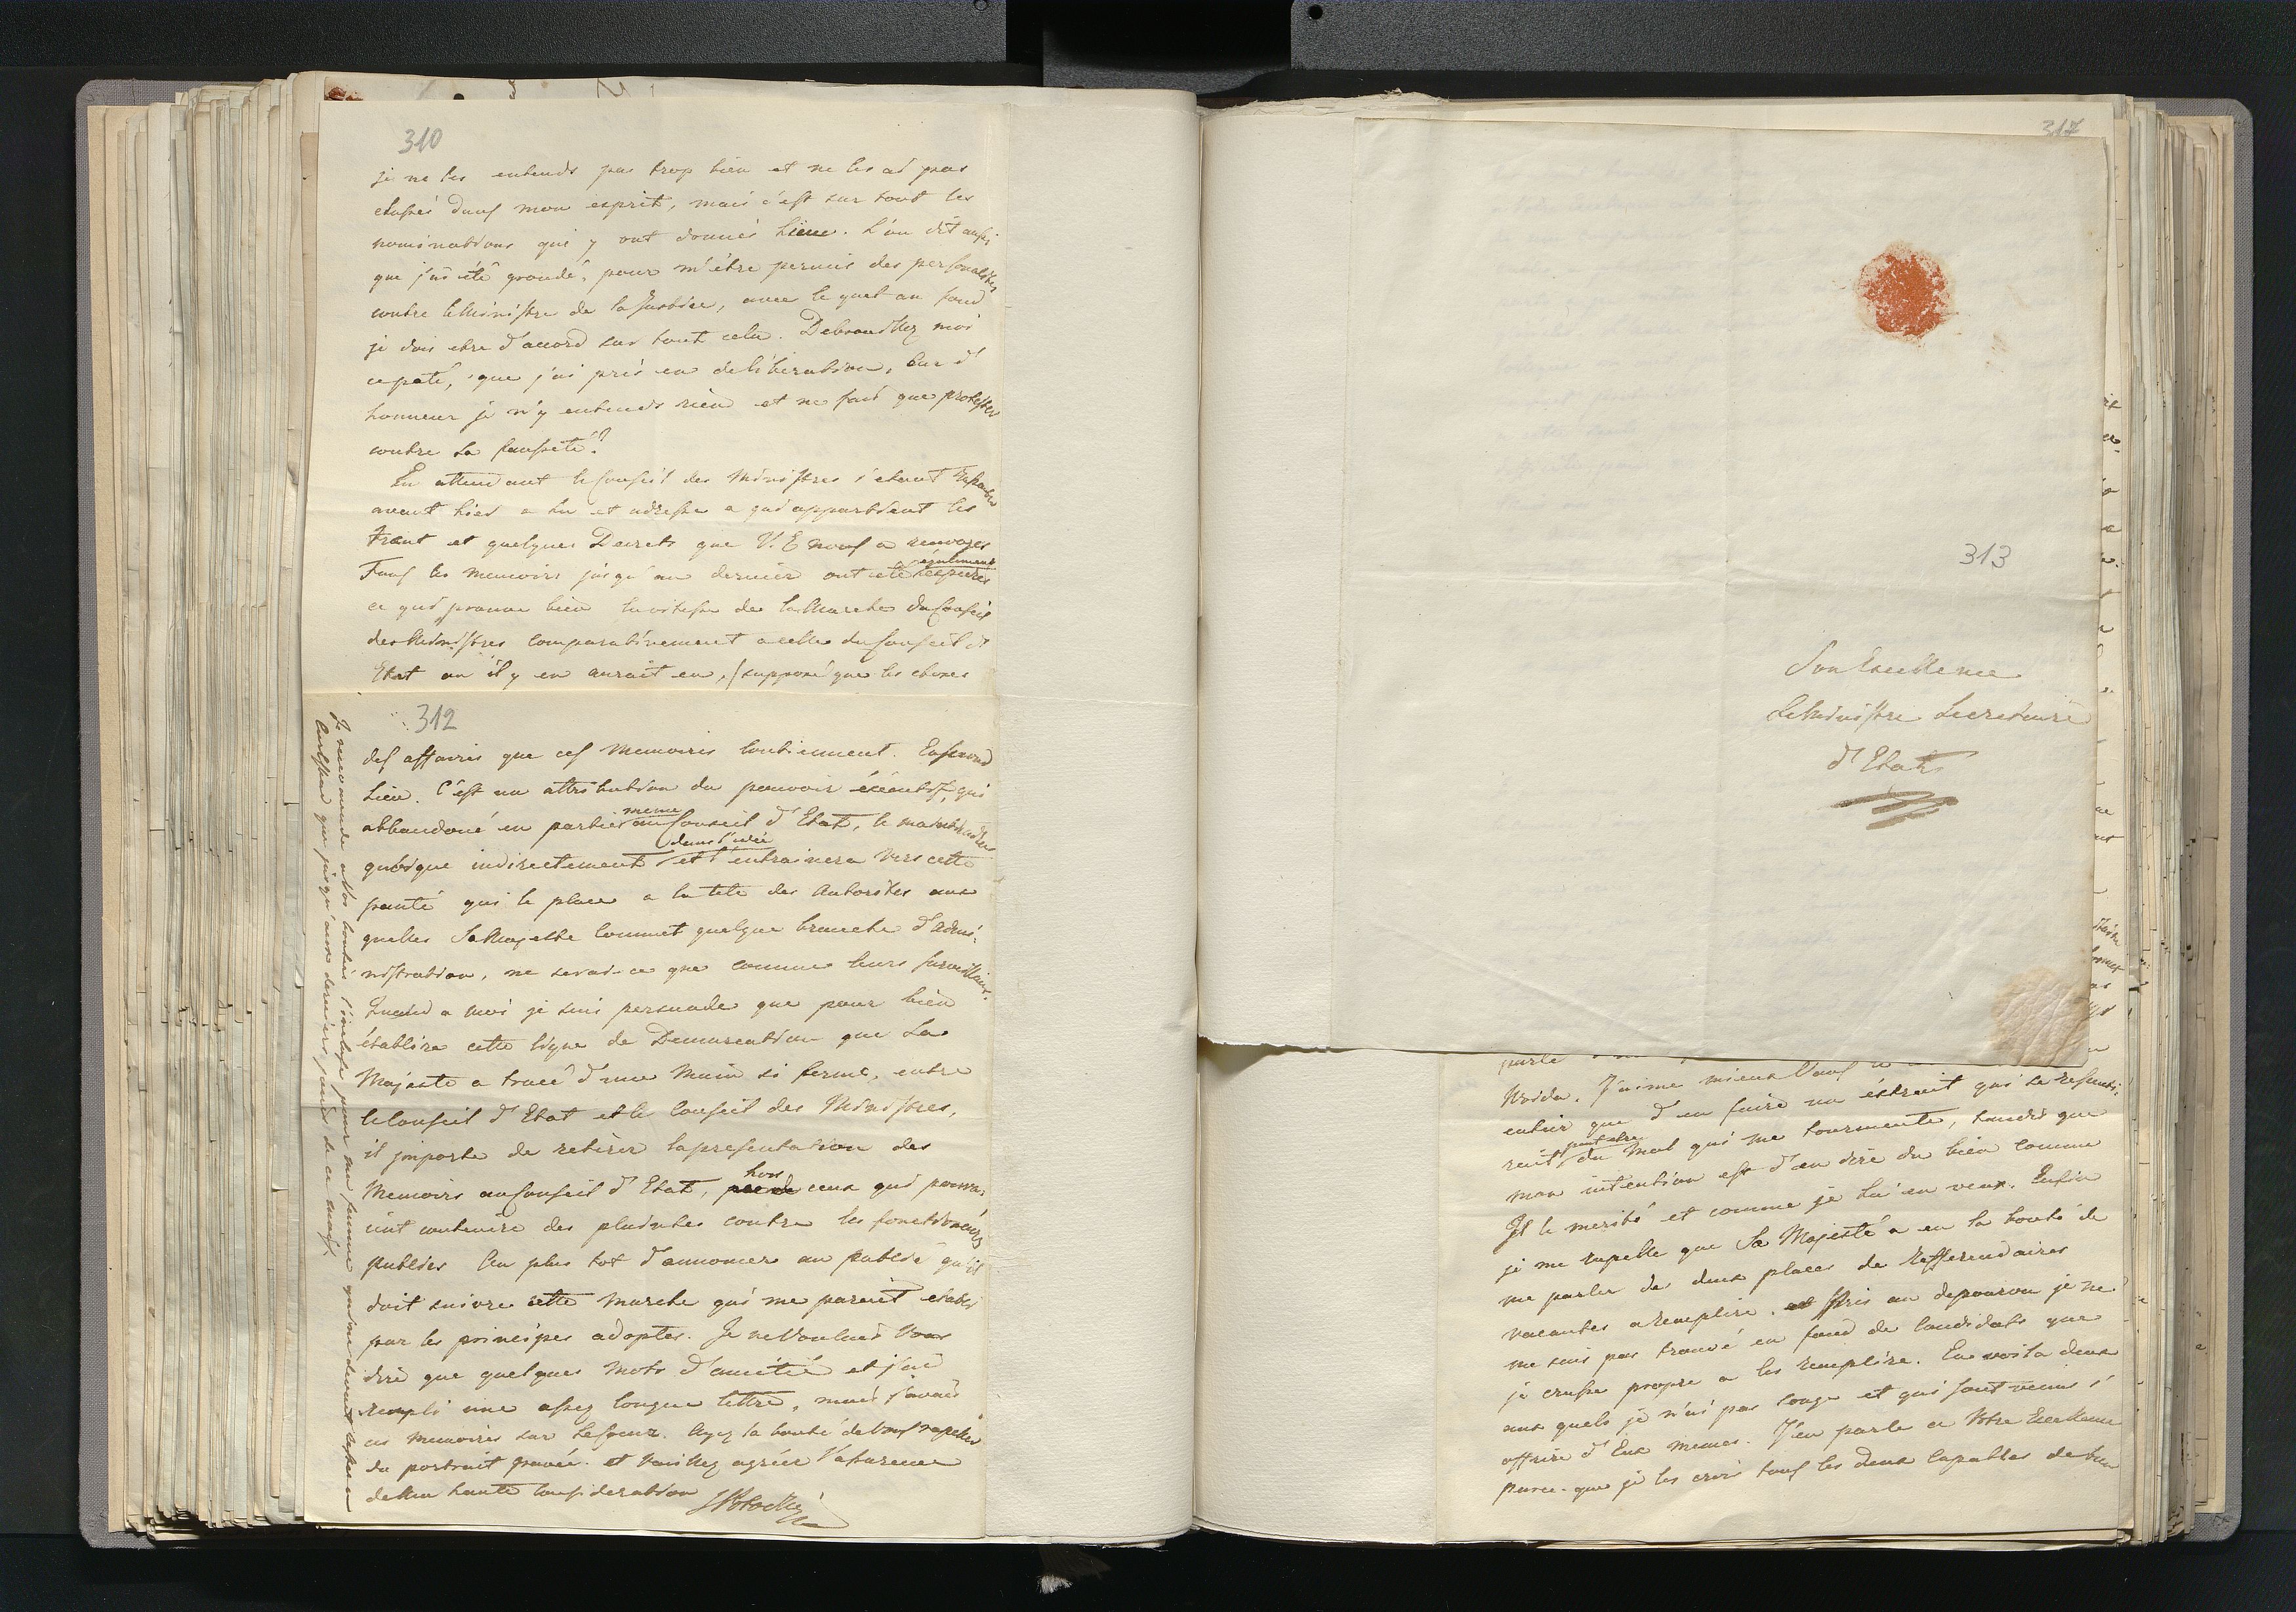 310
je ne les entends pas trop bien et ne les ai pas
classés dans mon esprit, mais c'est sur tout les
nominations qui y ont donnés lieue. L'on dit aussi
que j'ai été grondé, pour m'être permis des personalités
contre le Ministre de la Justice, avec le quel au fond
je dois etre d'accord sur tout cela. Debrouillez moi
ce paté, que j'ai pris en deliberation, car d'
honneur je n'y entends rien et ne fais que protester
contre la fausseté?
En attendant le Conseil des Ministres s'etant
avant hier a lu et adressé a qui appartient les
trent et quelques Decrets que V. E nous a renvoyés
Tous les memoires jusqu'au dernier ont été également
ce qui prouve bien la vitesse de la Marche du Conseil
des Ministres comparativement a celle du Conseil d'
Etat ou il y en aurait eu, (supposé que les choses
312
des affaires que ces Memoires contiennent. En second
Lieu. C'est un attribution du pouvoir éxécutif, qui
abbandoné en partie meme au Conseil d'Etat, le
quoique indirectement dans l'idée et l'entrainera vers cette
pente qui le place a la tete des Autorites aux
quelles Sa Majesté commet quelque branche d'admi-
nistration, ne serai-ce que comme leurs surveillant.
Quand a moi je suis persuade que pour bien
établire cette ligne de Demarcation que Sa
Majesté a tracé d'une Main si ferme, entre
le Conseil d'Etat et le Conseil des Ministres,
il importe de retirer la presentation des
Memoires au Conseil d'Etat, hors ceux qui pouvai-
ent contenire des plaintes contre les fonctionaires
publics Au plus tot d'annoncer au public qu'il
doit suivre cette Marche qui me parait etabli
par les principes adoptés. Je ne voulais Vous
dire que quelques Mots d'amitié et j'ai
rempli une assez longue lettre, mais j'avais
ces Memoires sur le coeur. Ayez la bonté de Vous rapeller
du portrait gravée. et Veuillez agréer l'assurence
de Ma haute Consideration
SPotocki
Je recomande a Vos bontés pour ma femme qui ne devient
que jusqu'aux derniers jours de ce mois.
317
313
Son Excellence
Le Ministre Secretaire
d'Etat
parle
Woida. J'aime mieux Vous
entier que d'en faire un éxtrait qui se ressenti-
rait peut etre du Mal qui me tourmente, tandis que
mon intention est d'en dire du bien comme
Il le merite et comme je lui en veux. Enfin
je me rapelle que Sa Majesté a eu la bonté de
me parler de deux places de Refferendaires
vacantes a remplire. Pris au depourvu je ne
me suis pas trouvé en fond de Candidats que
je crusse propre a les remplire. En voila deux
aux quels je n'ai pas songe et qui sont venus s'
offrire d'Eux memes. J'en parle a Votre Excellence
parce que je les crois tous les deux Capables de